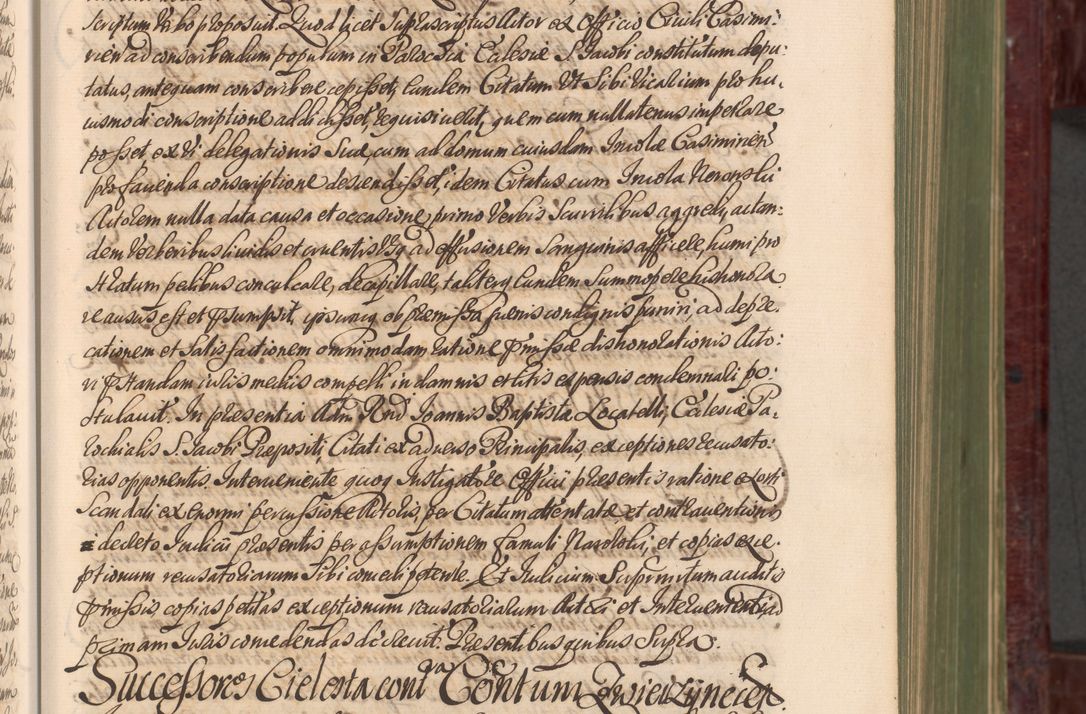 scriptum Verbo proposuit. Quod licet Suprascriptus Actor ex Officio Civili Casimi:
rien ad conscribendum populum in Parochia Ecclesiæ S. Jacobi constitutum depu:
tatus, antequam conscribere cepisset, Eundem Citatum Ut Sibi Vicarium pro hu,
iusmodi conscriptione addidisset, requisiverit, quem cum nullatenus impetrare
posset ex Vi delegationis Suæ, cum ad domum cuiusdam Incolæ Casimirien
pro favenda conscriptione descendisset, idem Citatus cum Incola Neronski
Actorem nulla data causa et occasione, primo Verbis Scurrilibus aggredi, actan:
dem Verberibus lividis et cruentis Usq ad effusionem Sanguinis afficere, humi pro
stratum pedibus conculcare, decapillare, taliterq Eundem Summopere dishonora
re ausus est et præsumpsit, ipsumq ob præmissa pænis condignis puniri, ad depre.
cationem et Satisfactionem omnimodam ratione præmissæ dishonorationis Acto:
ri præstandam iuris mediis compelli in damnis et litis expensis condemnari po:
stulavit. In præsentia Adm Rndi Joannis Baptistæ Locatelli, Ecclesiæ Pa,
rochialis S. Jacobi Præpositi Citati ex adverso Principalis, exceptiones recusato:
rias opponentis, Interveniente quoq Instigatore Officii præsentis ratione exorti
Scandali ex enormi percussione Actoris, per Citatum attentatæ, et contraventionis
decreto Iudicii præsentis per assumptionem famuli Narolski, et copias exce.
ptionum recusatoriarum Sibi concedi petente. Et Iudicium Suprmtum auditis
præmissis copias petitas exceptionum recusatoriarum Actori et Intervenienti ad
primam Iuris concedendas decrevit. Præsentibus quibus Supra.
Successores Cielesta contra Contum Zwierzynecen